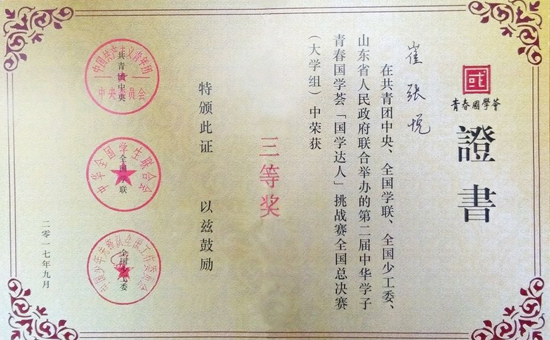 青春国学荟
證書
崔张悦
在共青团中央、全国学联、全国少工委、
山东省人民政府联合举办的第二届中华学子
青春国学荟「国学达人」挑战赛全国总决赛
（大学组）中荣获
三等奖
特颁此证 以兹鼓励
共青团中央
中国共产主义青年团
中央委员会
全国学联
中华全国学生联合会
全国少工委
二〇一七年九月